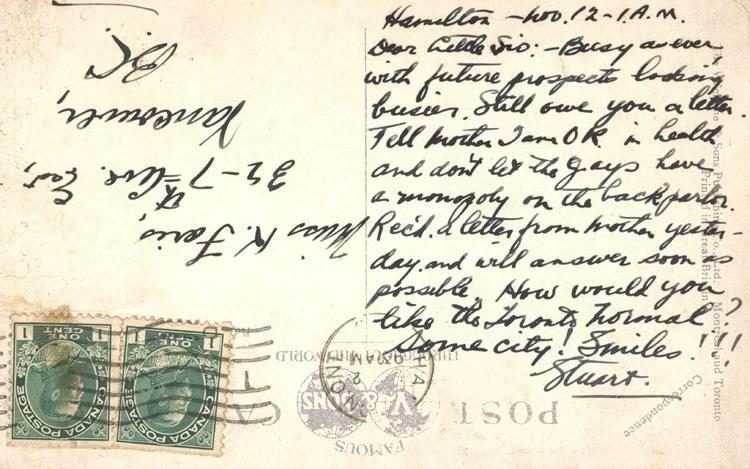 Hamilton - Nov. 12 - 1 A.M.
Dear Little Sis: - Busy as ever
with future prospects looking
busier. Still owe you a letter.
Tell Mother I am OK in health
and don't let the guys have
a monopoly on the back parlor.
Rec'd. a letter from Mother yester-
day and will answer soon as
possible. How would you
like the Toronto Normal?
Some city! Smiles!!!
Stuart.
Miss K. Faris,
32 - 7th Ave. East,
Vancouver,
B.C.
POST CA
Correspondence
FAMOUS
THROUGHOUT THE WORLD
HA ON
9 30 AM
CANADA POSTAGE
1 ONE CENT 1
CANADA POSTAGE
1 ONE CENT 1
Montreal and Toronto